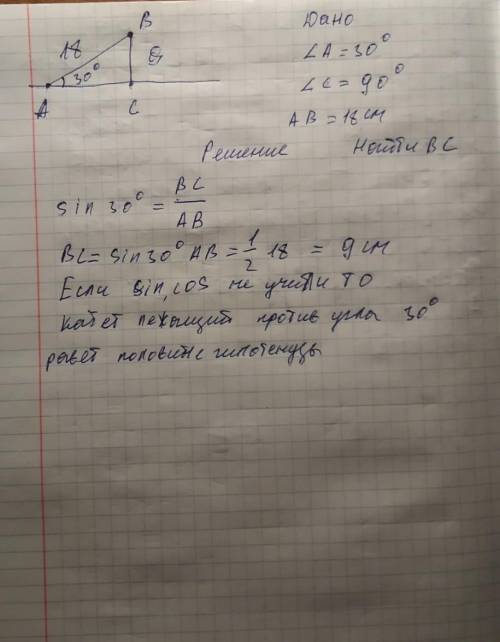 B
Дано
18
∠A = 30°
30°
∠C = 90°
A
C
AB = 18 см
Решение
Найти BC
sin 30° = BC/AB
BC = sin 30° AB = 1/2 18 = 9 см
Если sin, cos не учили то
катет лежащий против угла 30°
равет половине гипотенузы